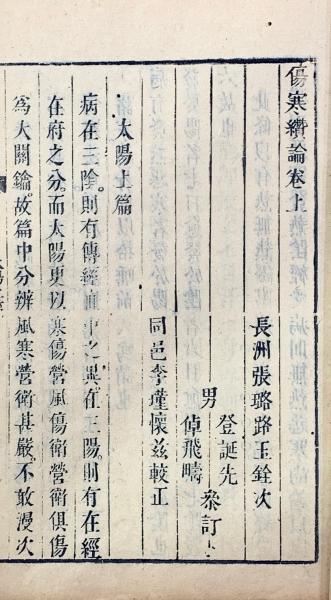 傷寒纘論卷上
長洲張璐路玉銓次
男
登誕先
倬飛疇
叅訂
同邑李瑾懷茲較正
太陽上篇
病在三陰。則有傳經直中之異。在三陽。則有在經
在府之分。而太陽更以寒傷營。風傷衛。營衛俱傷
為大關鑰。故篇中分辨風寒營衛甚嚴。不敢漫次